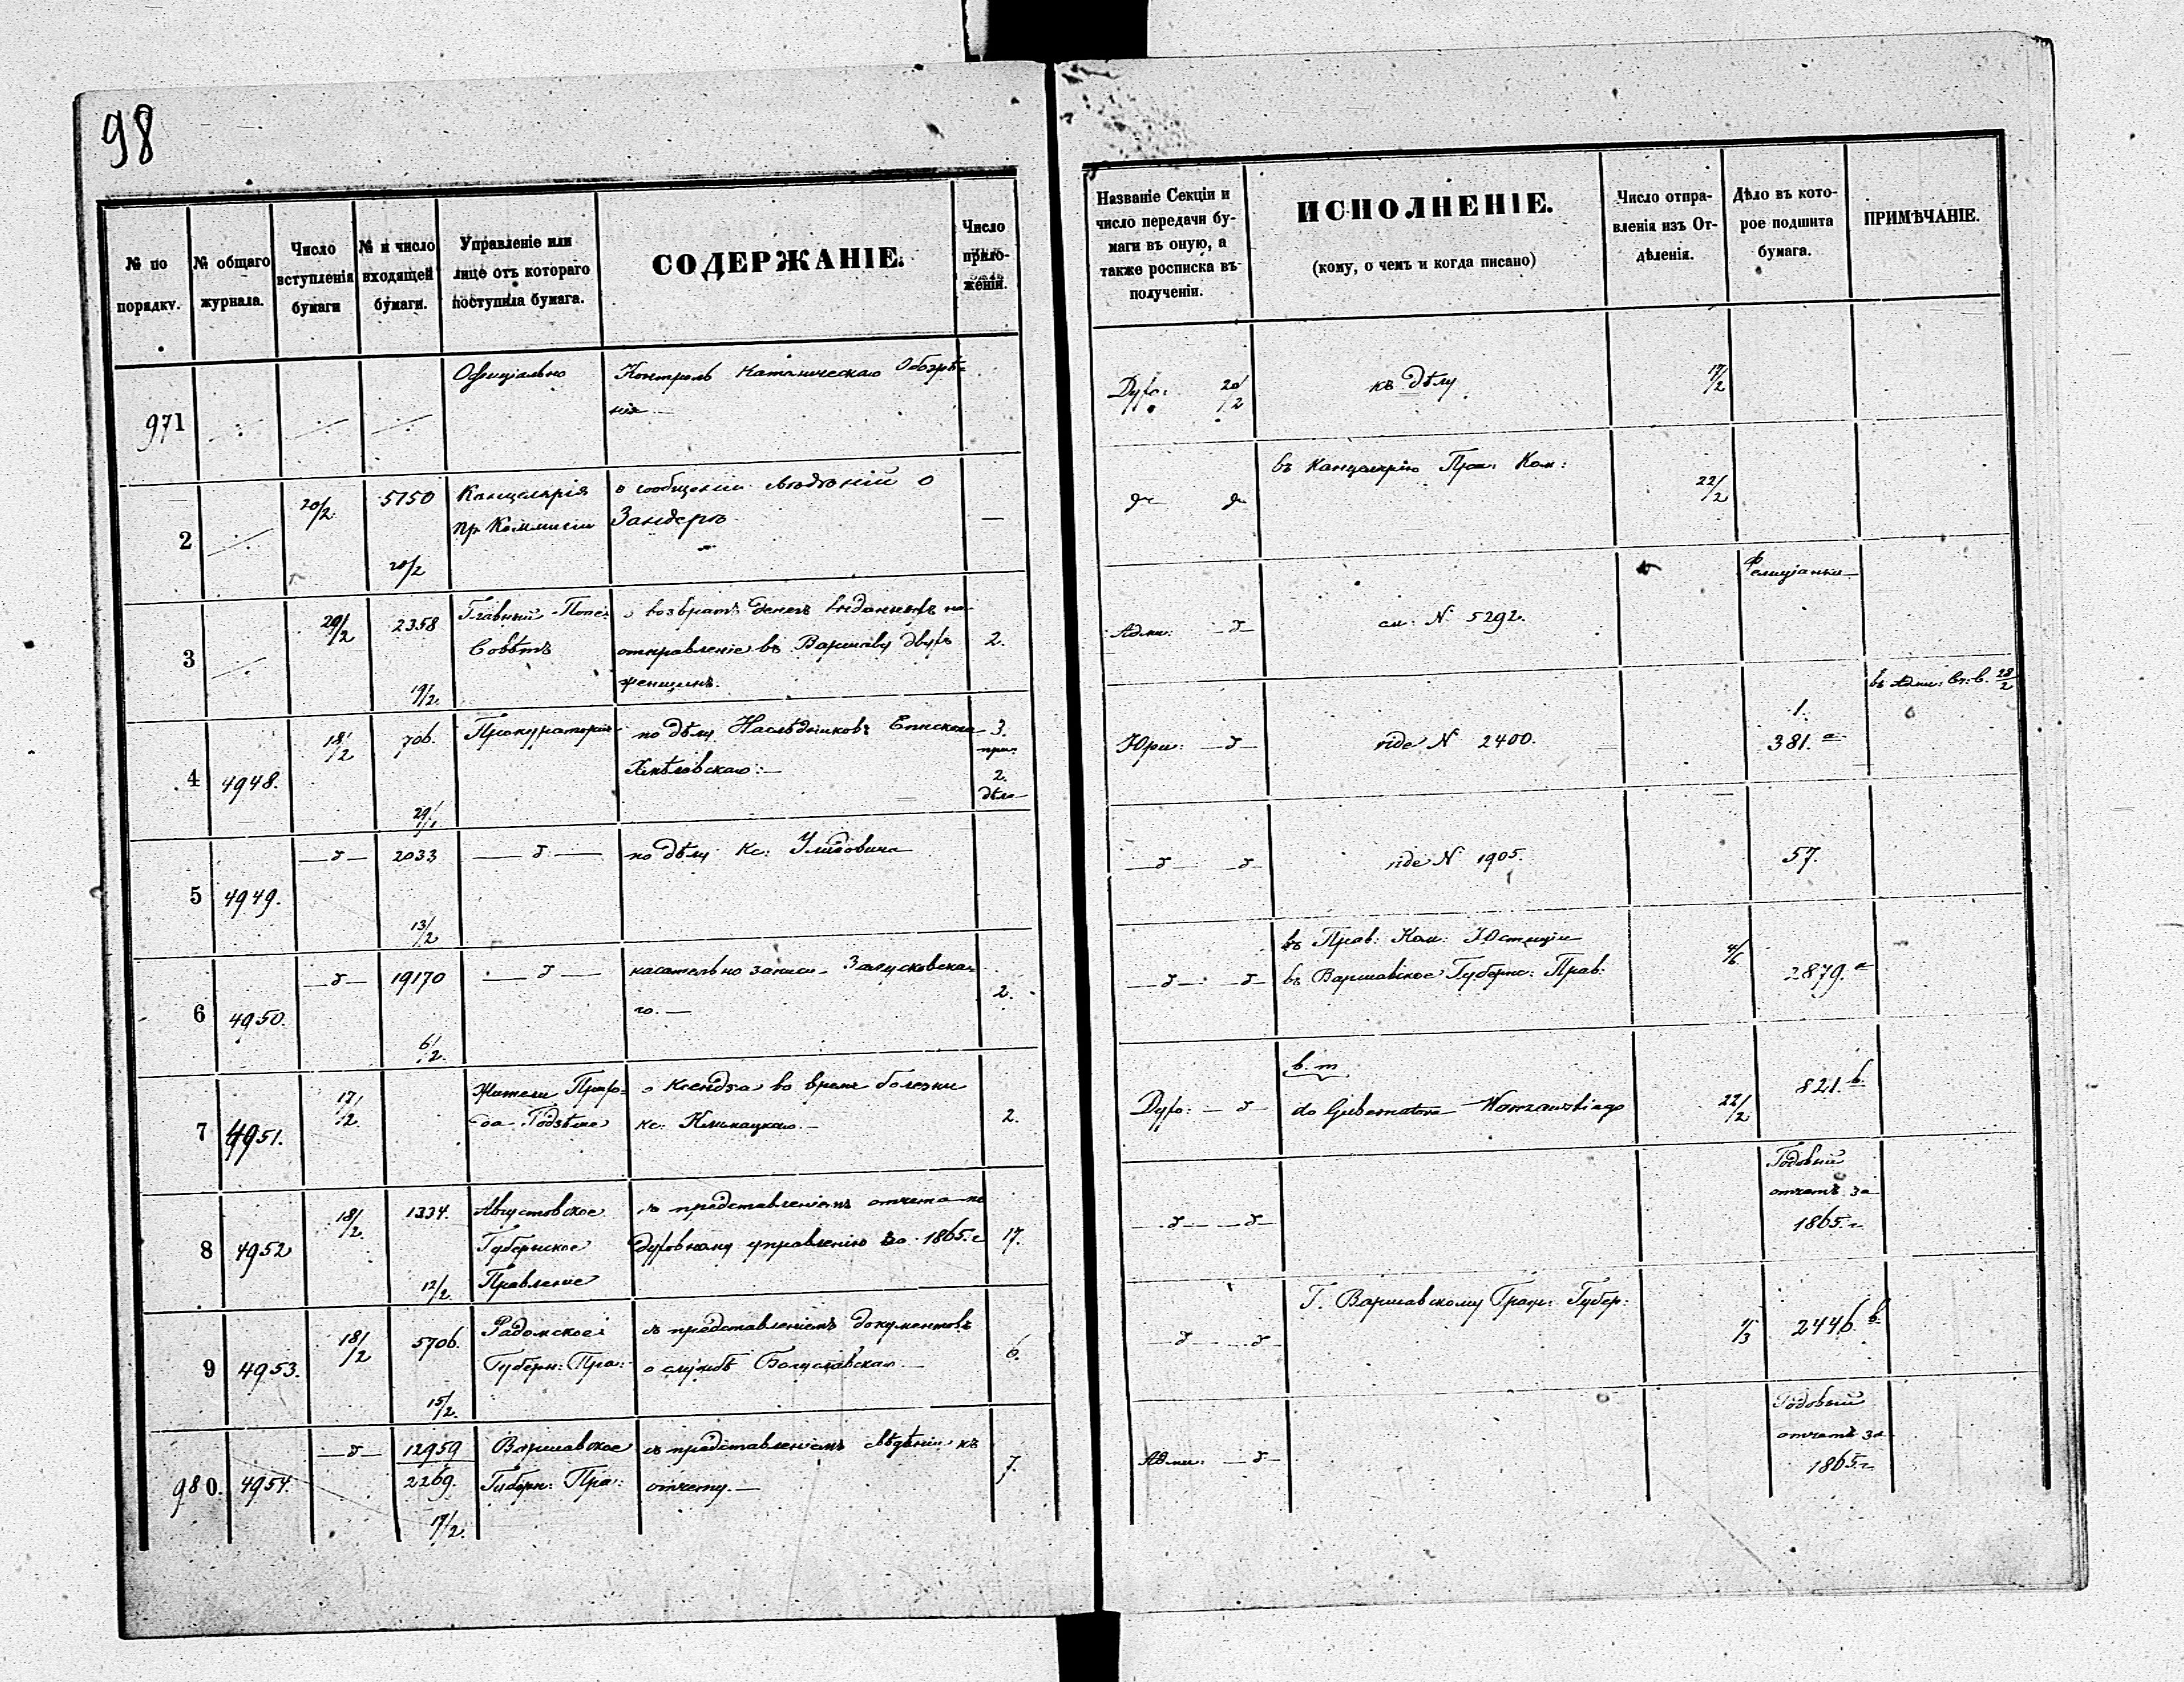 98
№ по порядку.
№ общаго журнала.
Число вступленія бумаги
№ и число входящей бумаги.
Управленіе или лице отъ котораго поступила бумага.
СОДЕРЖАНІЕ.
Число приложенія.
Названіе Секціи и число передачи бумаги въ оную, а также росписка въ полученіи.
ИСПОЛНЕНІЕ.
(кому, о чемъ и когда писано)
Число отправленія изъ Отдѣленія.
Дѣло въ которое подшита бумага.
ПРИМѢЧАНІЕ.
971
Офиціально
Контроль Католическаго Обозрѣ-
нія
Духо: 20/2
къ дѣлу
17/2
2
20/2
5150
20/2
Канцелярія
пр. Коммисіи
о сообщеніи свѣдѣній о
Зандеръ
—
въ Канцелярію Прав: Ком:
22/2
3
20/2
2358
19/2
Главный Попе:
Совѣтъ
о возвратѣ денегъ выданныхъ на
отправленіе въ Варшаву двухъ
женщинъ.
2.
Адми: —
см: № 5292.
4
4948.
18/2
706.
29/1
Прокураторія
по дѣлу Наслѣдниковъ Епископа
3.
при:
2.
дѣла
Юри: —
vide № 2400.
1.
381. a
въ Адми: 28/2
5
4949.
2033
13/2
по дѣлу Кс:
vide № 1905.
57.
6
4950.
19170
6/2
касательно записи Залусковска-
го. —
2.
въ Прав: Ком: Юстиціи
въ Варшавское Губернс: Прав:
4/6
2879. a
7
4951.
17/2
Жители
о Ксендза во время болезни
кс.
2.
Духо: —
в. т
do Gubernatora Warszawskiego
22/2
821. b.
8
4952
18/2
1334.
12/2
Августовское
Губернское
Правленіе
съ представленіемъ отчета по
духовному управленію за 1865. г
17.
Годовый
отчетъ за
1865. г.
9
4953.
18/2
5706.
15/2
Радомское
Губерн: Пра:
съ представленіемъ документовъ
о службѣ Богуславскаго —
6.
Г. Варшавскому Граж: Губер:
1/3
2446. b.
980.
4954.
12959
2269.
17/2.
Варшавское
Губерн: Пра:
съ представленіемъ свѣдѣнія къ
отчету. —
7.
Адми: —
Годовый
отчетъ за
1865. г.